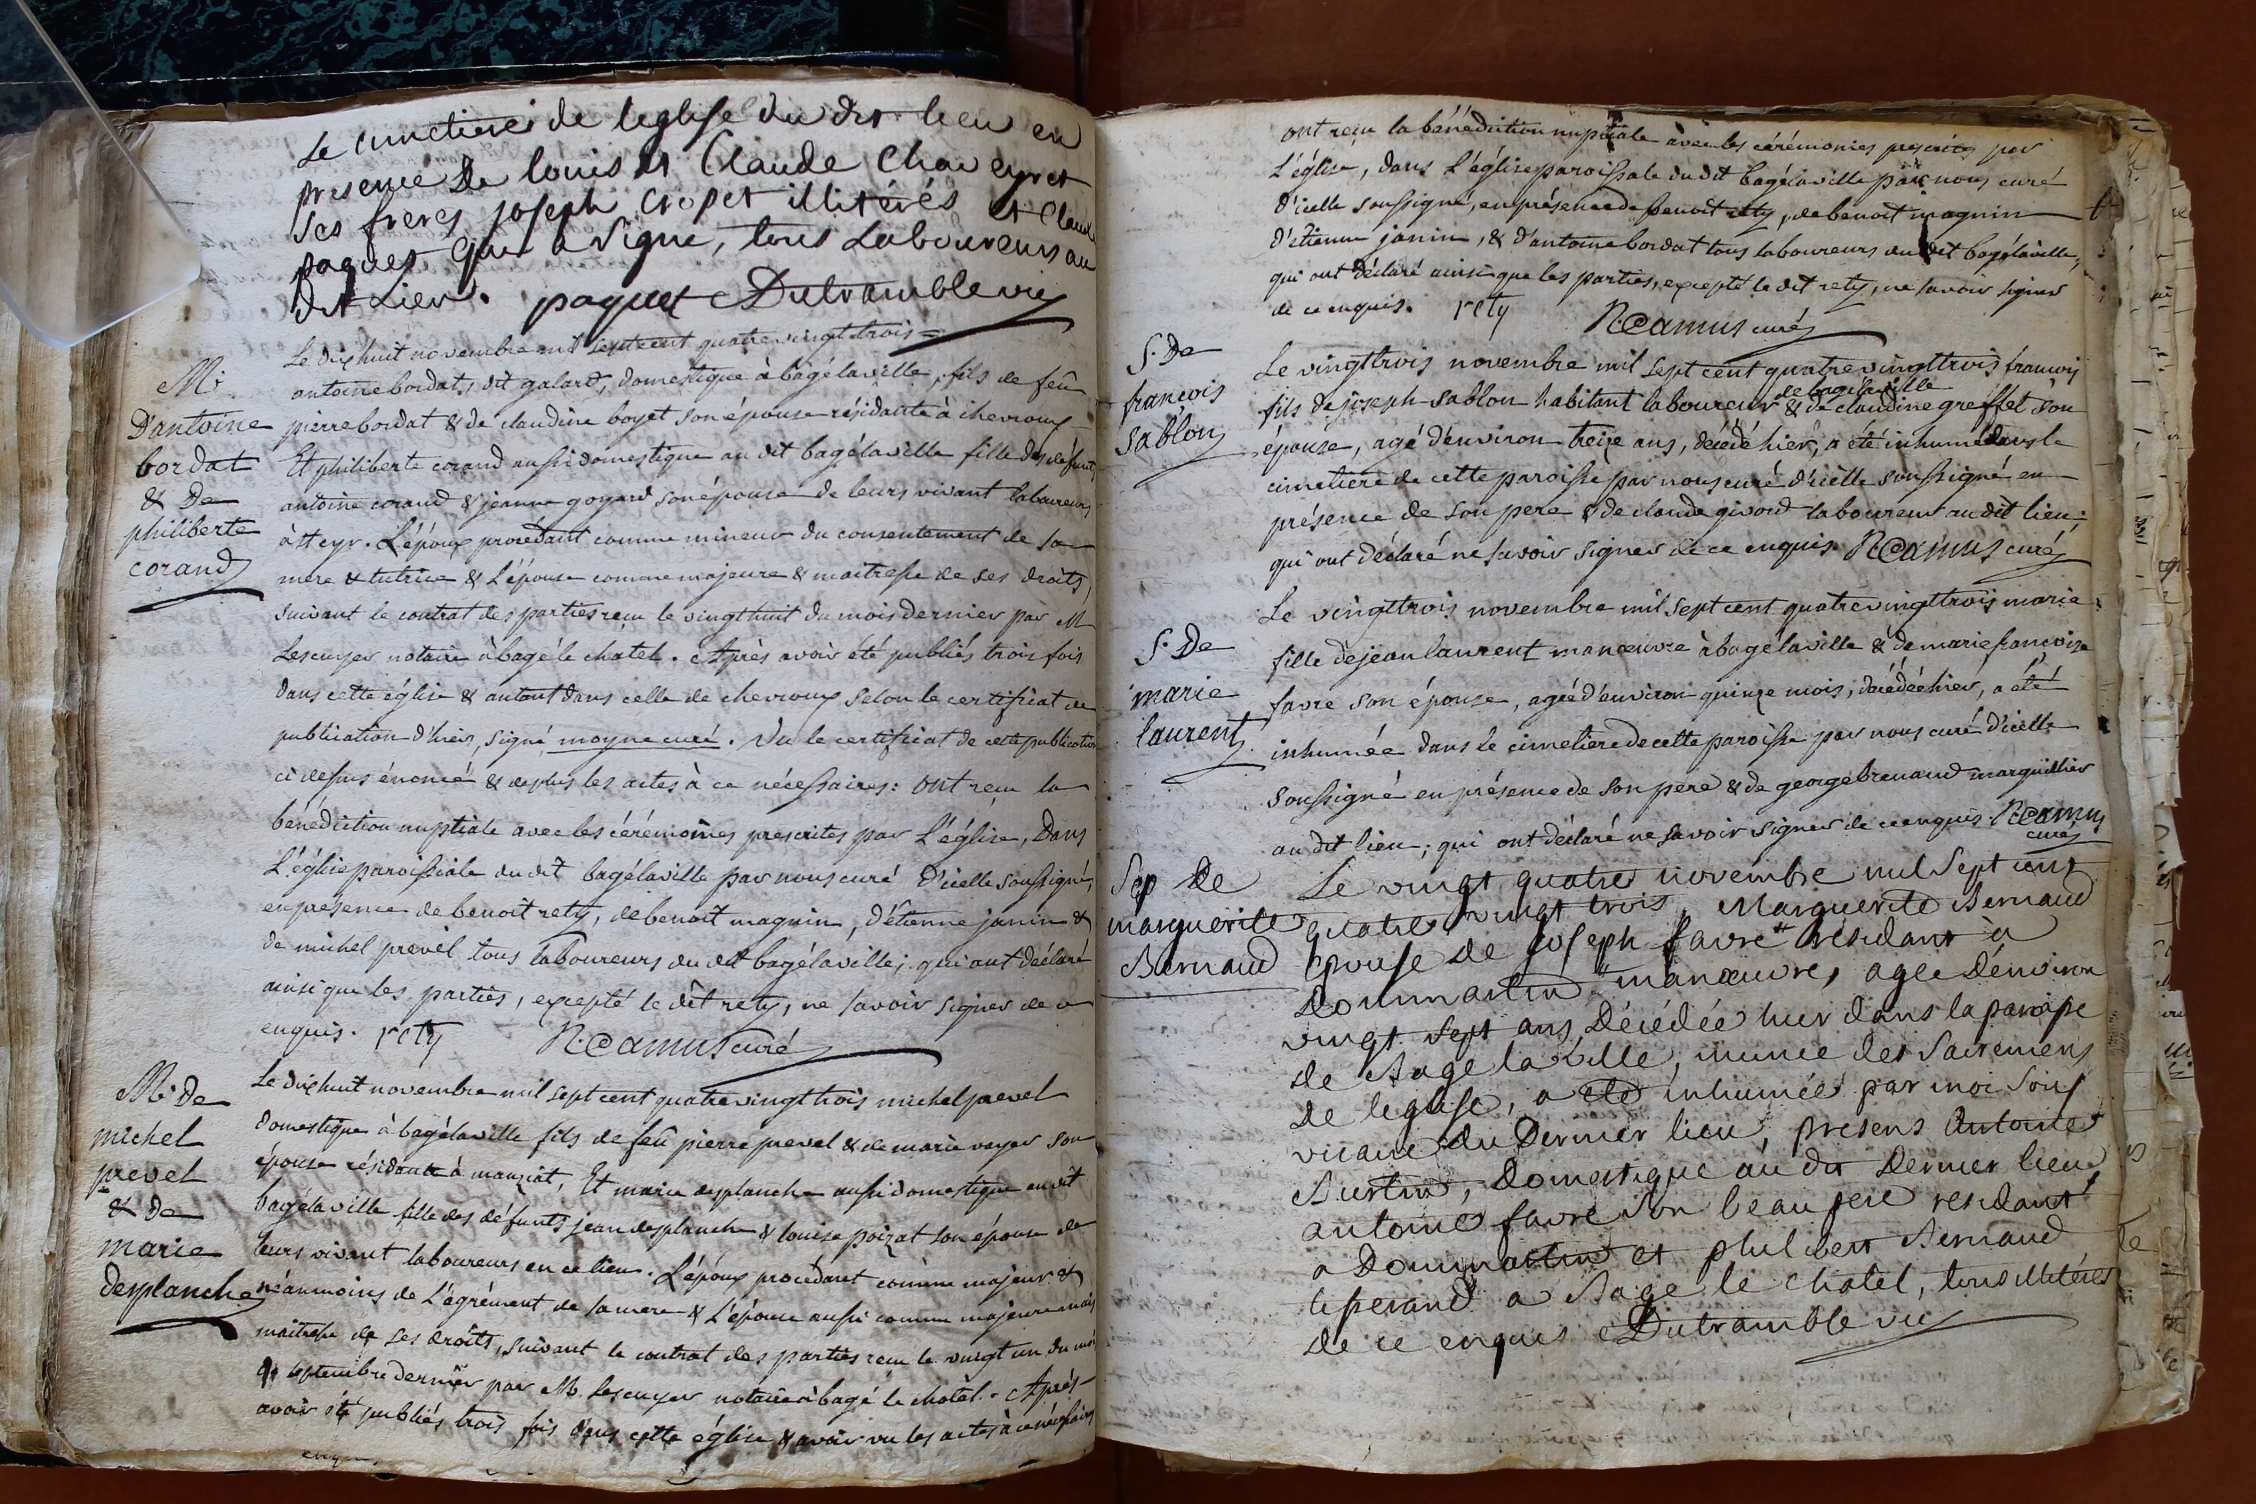 Le cimetiere de leglise du dit lieu en
presence de louis et Claude Chaveyret
ses freres joseph cropet illitérés et Claude
paques qui a signé, tous Laboureurs au
dit Lieu. paquet Dutramble vic
M: D'antoine bordat & De philiberte corand
Le dixhuit novembre mil sept cent quatre vingt trois =
antoine bordat, dit galard, domestique à bâgélaville, fils de feû
pierre bordat & de claudine boyet son épouse résidante à chevroux
Et philiberte corand aussi domestique au dit bagélaville fille des défunts
antoine corand & jeanne goyard son épouse de leurs vivant laboureurs
à st cyr. L'époux procédant comme mineur du consentement de sa
mere & tutrice & L'épouse comme majeure & maitresse de ses droits,
suivant le contrat des parties reçu le vingt huit du mois dernier par M
Lescuyer notaire à bagé le chatel. Après avoir été publiés trois fois
dans cette église & autant dans celle de chevroux selon le certificat de
publication d'hier, signé moyne curé. Vu le certificat de cette publication
ci dessus énoncé & deplus les actes à ce nécessaires: ont reçu la
bénédiction nuptiale avec les cérémonies prescrites par L'église, Dans
L'église paroissiale du dit bagélaville par nous curé D'icelle soussigné,
en presence de benoît rety, de benoît magnin, d'étienne janin &
de michel prevel tous laboureurs du dit bagélaville; qui ont déclaré
ainsi que les parties, excepté le dit rety, ne savoir signer de ce
enquis. rety N. Camus curé
M: de michel prevel & De marie desplanche
Le dixhuit novembre mil sept cent quatre vingt trois michel prevel
domestique à bagélaville fils de feû pierre prevel & de marie voyer son
épouse résidante à manziat, Et marie desplanche aussi domestique au dit
bagélaville fille des défunts jean desplanche & louise poizat son épouse de
leurs vivant laboureurs en ce lieu. L'époux procédant comme majeur &
néanmoins de L'agrément de sa mere & L'épouse aussi comme majeure mais
maitresse de ses droits, suivant le contrat des parties reçu le vingt un du mois
de septembre dernier par M. Lescuyer notaire à bagé le chatel. Après
avoir été publiés trois fois dans cette église & avoir vu les actes à ce nécessaires
ont reçu la bénédiction nuptiale avec les cérémonies prescrites par
L'église, dans L'église paroissiale du dit bagélaville par nous curé
d'icelle soussigné, en présence de benoît rety, de benoît magnin
d'étienne janin, & d'antoine bordat tous laboureurs du dit bagélaville,
qui ont déclaré ainsi que les parties, excepté le dit rety, ne savoir signer
de ce enquis. rety N. Camus curé
S. De françois sablon
Le vingt trois novembre mil sept cent quatre vingt trois françois
de bagélaville
fils de joseph sablon habitant laboureur & de claudine greffet son
épouse, agé d'environ treize ans, décédé hier, a été inhumé dans le
cimetiere de cette paroisse par nous curé d'icelle soussigné en
présence de son pere & de claude givord laboureur au dit lieu;
qui ont déclaré ne savoir signer de ce enquis. N. Camus curé
S. De marie laurent
Le vingt trois novembre mil sept cent quatre vingt trois marie
fille de jean laurent manœuvre à bagélaville & de marie françoise
favre son épouse, agée d'environ quinze mois, décédée hier, a été
inhumée dans le cimetiere de cette paroisse par nous curé d'icelle
soussigné en présence de son pere & de george brenaud marguillier
au dit lieu; qui ont déclaré ne savoir signer de ce enquis. N. Camus
curé
Sep De marguerite Bernaud
Le vingt quatre novembre mil sept cent
quatre vingt trois, Marguerite Bernaud
Epouse de joseph favre residant à
Dommartin manœuvre, agee d'environ
vingt sept ans, décédée hier dans la paroisse
de Bage la ville, munie des sacremens
de leglise, a eté inhumée par moi sous
vicaire du dernier lieu, presens Antoine
Burtin, Domestique au dit dernier lieu
antoine favre son beau pere residant
a Dommartin et philibert Bernaud
tisserand a Bage le chatel, tous illitérés
de ce enquis Dutramble vic